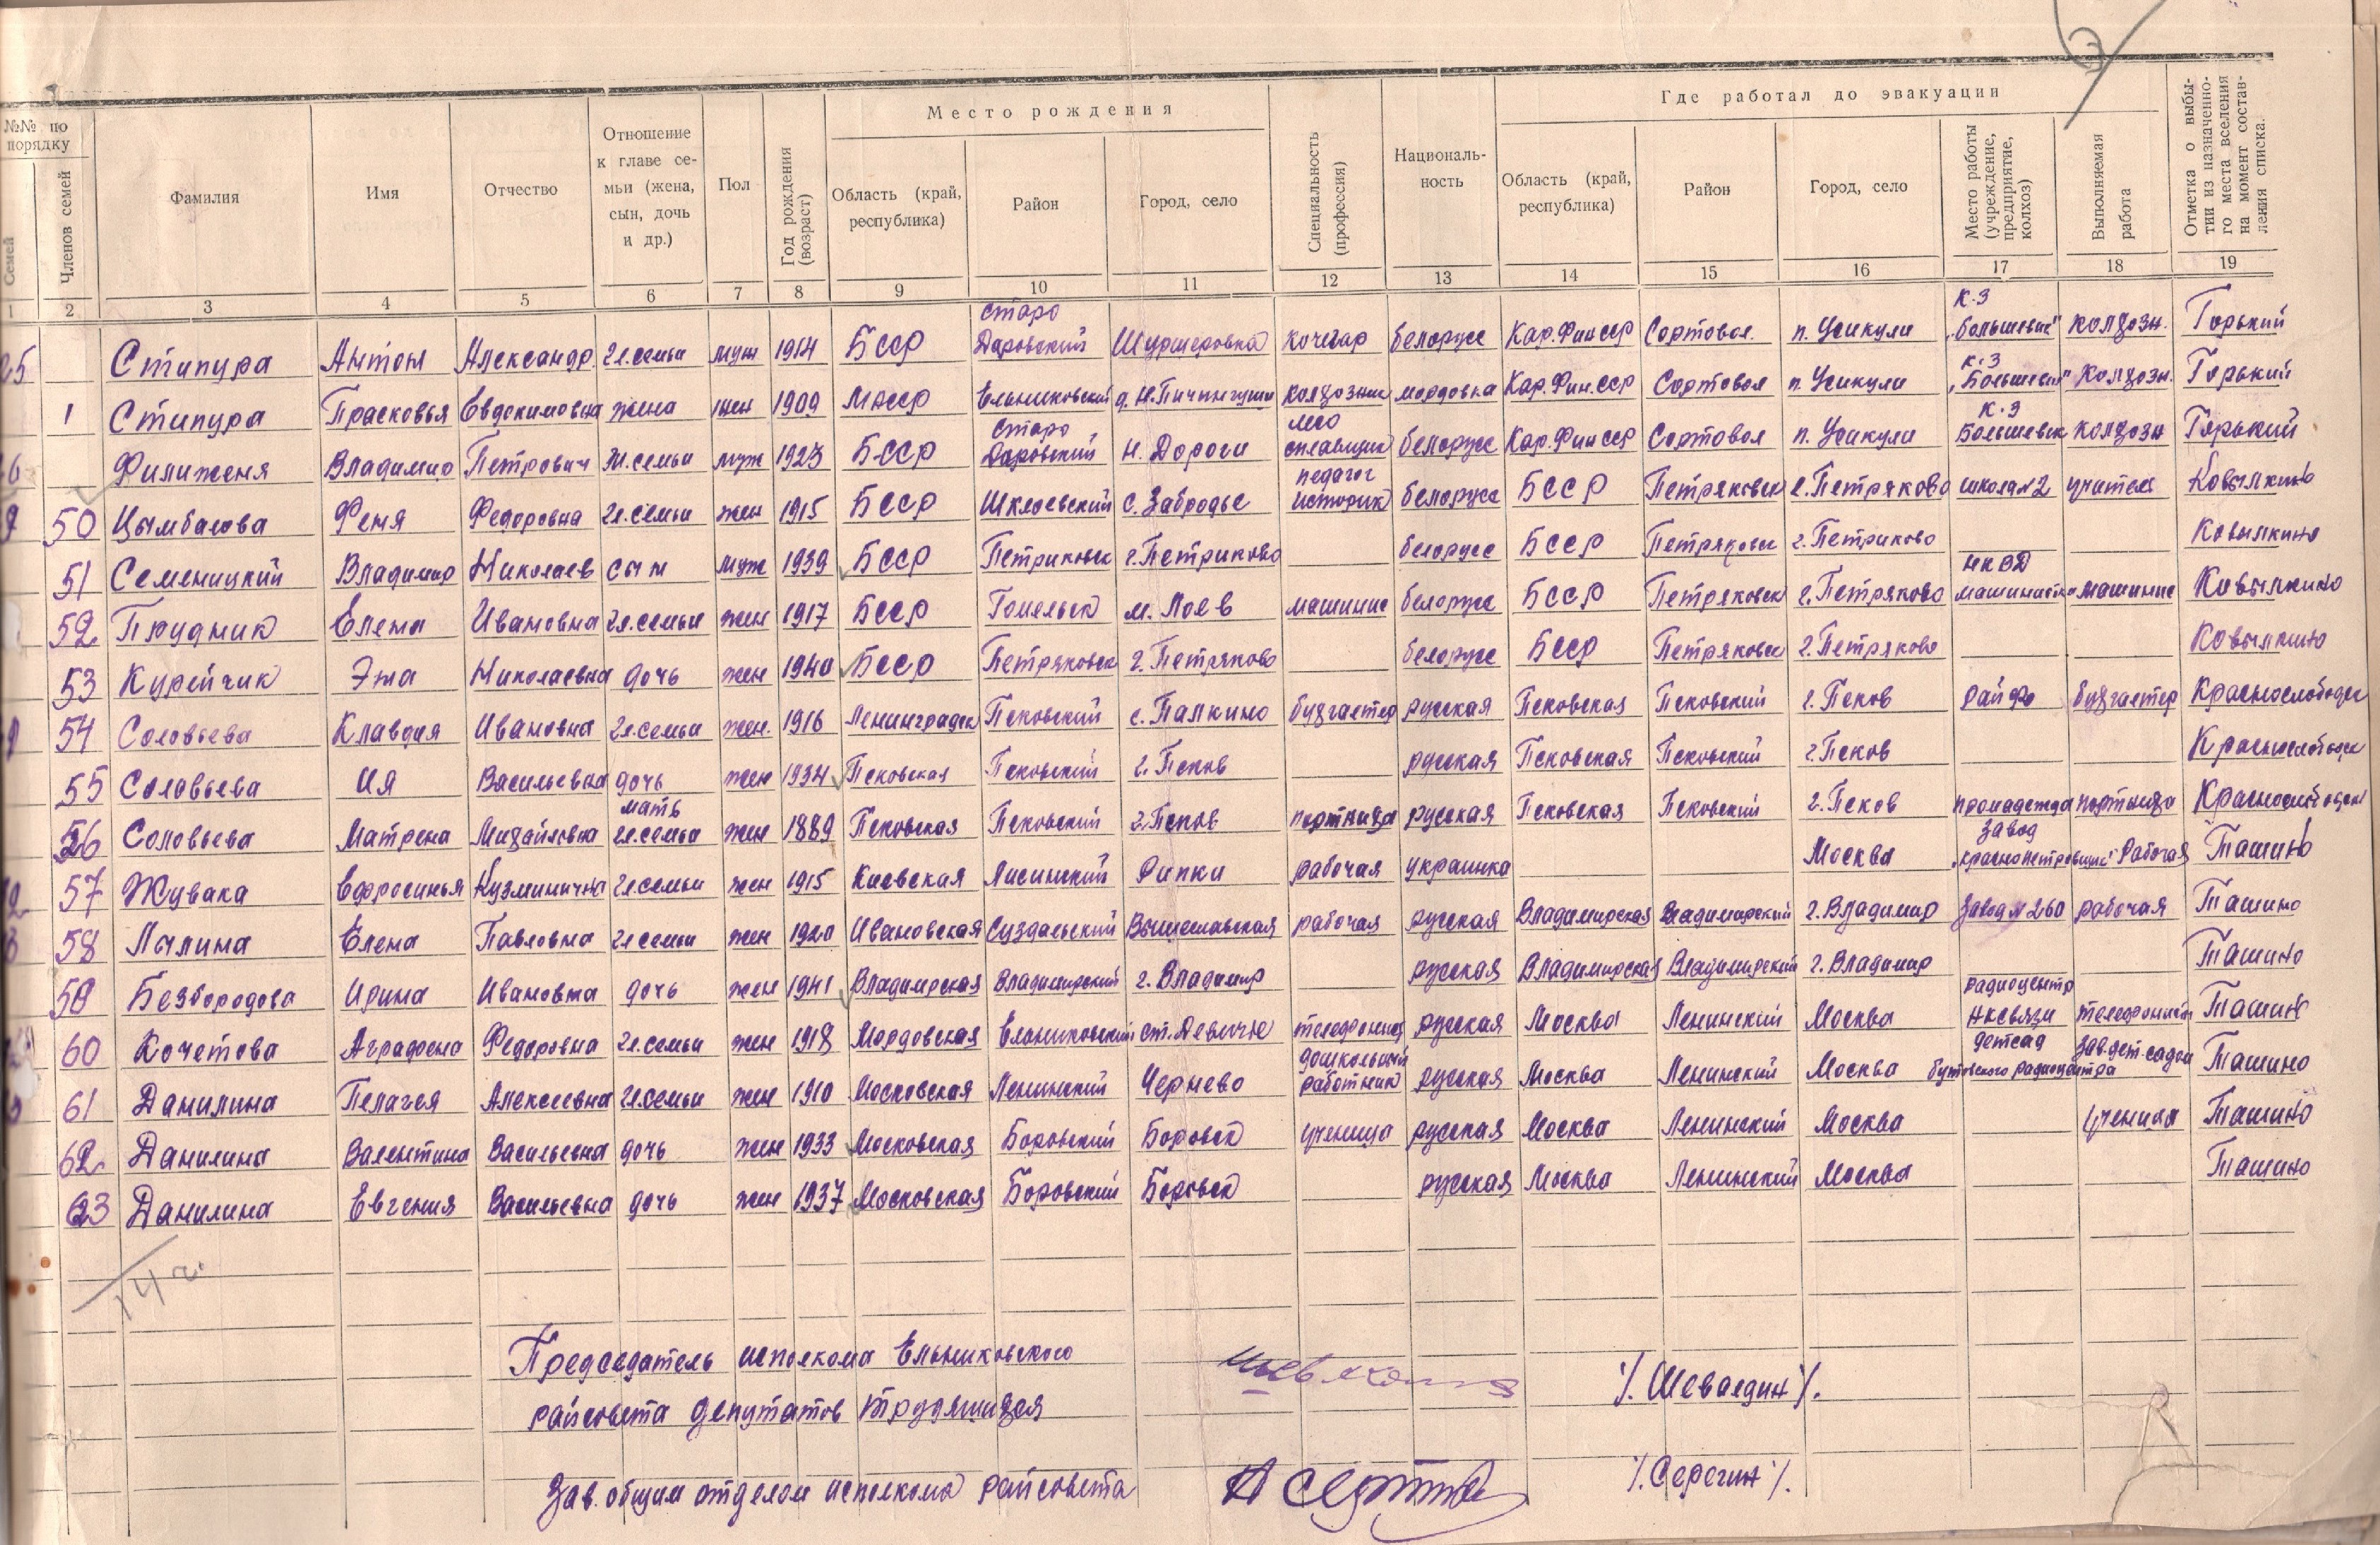 №№ по порядку
Место рождения
Где работал до эвакуации
Семей
Членов семей
Фамилия
Имя
Отчество
Отношение к главе семьи (жена, сын, дочь и др.)
Пол
Год рождения (возраст)
Область (край, республика)
Район
Город, село
Специальность (профессия)
Националь-ность
Область (край, республика)
Район
Город, село
Место работы (учреждение, предприятие, колхоз)
Выполняемая работа
Отметка о выбы-тии из назначенно-го места вселения на момент состав-ления списка.
1 2 3 4 5 6 7 8 9 10 11 12 13 14 15 16 17 18 19
25 Стипура Антон Александр. гл.семьи муж 1914 БССР Старо Даровский Шуршеровка кочегар белорусс Кар.Фин ССР Сортовол. п. Усикули к-з "Большевик" колхозн. Горький
1 Стипура Прасковья Евдокимовна жена жен 1909 МАССР Ельниковский д. Н.Пичингуши колхозник мордовка Кар.Фин.ССР Сортовол п. Усикули к-з "Большевик" колхозн. Горький
26 Филиженя Владимир Петрович гл.семьи муж 1923 БССР Старо Даровский Н. Дороги лесо сплавщик белорусс Кар.Фин ССР Сортовол п. Усикули к-з Большевик колхозн Горький
50 Цымбалова Феня Федоровна гл.семьи жен 1915 БССР Шкловский с. Забродье педагог историк белорусс БССР Петряковск г.Петряково школа №2 учитель Ковылкино
51 Семеницкий Владимир Николаев сын муж 1939 БССР Петриковск г.Петриково белорусс БССР Петряковск г.Петриково Ковылкино
52 Прудник Елена Ивановна гл.семьи жен 1917 БССР Гомельск м. Лоев машинис белорусс БССР Петряковск г.Петряково НКВД машинистка машинис Ковылкино
53 Курейчик Эна Николаевна дочь жен 1940 БССР Петряковск г.Петряково белорусс БССР Петряковск г.Петряково Ковылкино
54 Соловьева Клавдия Ивановна гл.семьи жен. 1916 Ленинградск Псковский с. Палкино бухгалтер русская Псковская Псковский г.Псков райфо бухгалтер Краснослободск
55 Соловьева Ия Васильевна дочь жен 1934 Псковская Псковский г.Псков русская Псковская Псковский г.Псков Краснослободск
56 Соловьева Матрена Михайловна мать гл.семьи жен 1889 Псковская Псковский г.Псков портниха русская Псковская Псковский г.Псков промодежда портниха Краснослободск
57 Жувака Ефросинья Кузминична гл.семьи жен 1915 Киевская Лисинский Рипки рабочая украинка Москва завод "Краснопетровщик" Рабочая Ташино
58 Лылина Елена Павловна гл семьи жен 1920 Ивановская Суздальский Вышеславская рабочая русская Владимирская Владимирский г.Владимир завод № 260 рабочая Ташино
59 Безбородова Ирина Ивановна дочь жен 1941 Владимрская Владимирский г. Владимир русская Владимирская Владимирский г.Владимир Ташино
60 Кочетова Аграфена Федоровна гл.семьи жен 1918 Мордовская Ельниковский ст.Девичье телефонист русская Москва Ленинский Москва радиоцентр НКсвязи телефонист Ташино
61 Данилина Пелагея Алексеевна гл.семьи жен 1910 Московская Ленинский Чернево дошкольный работник русская Москва Ленинский Москва детсад бутовского радиоцентра зав.дет.садом Ташино
62 Данилина Валентина Васильевна дочь жен 1933 Московская Боровский Боровск ученица русская Москва Ленинский Москва ученица Ташино
63 Данилина Евгения Васильевна дочь жен 1937 Московская Боровский Боровск русская Москва Ленинский Москва Ташино
Председатель исполкома Ельниковского
райсовета депутатов трудящихся /.Шевалдин/.
Зав. общим отделом исполкома райсовета /.Серегин/.